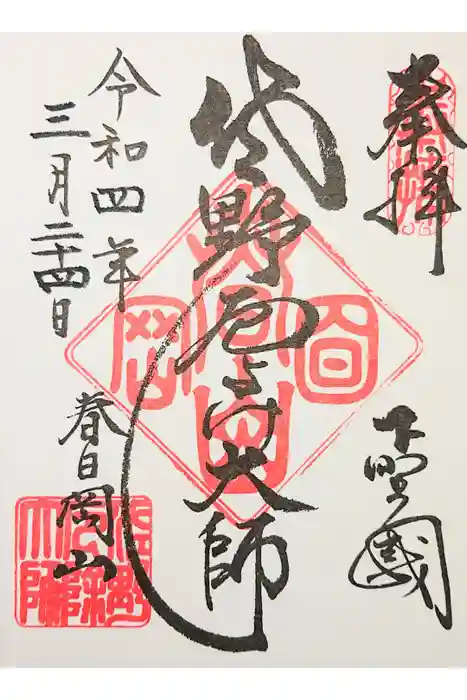 奉拝
下野國
佐野厄よけ大師
令和四年
三月二十四日
春日岡山